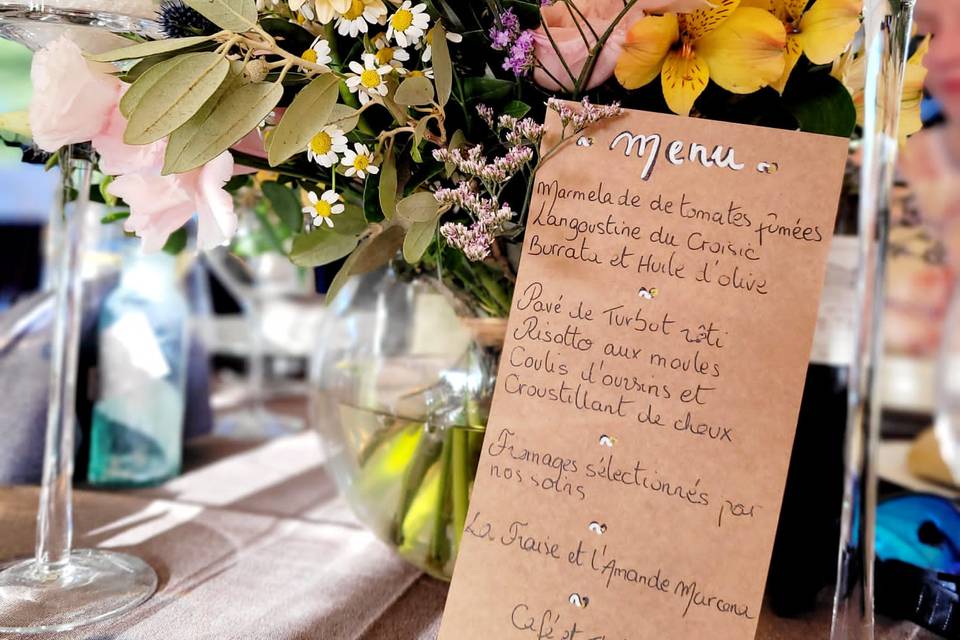 Menu
Marmelade de tomates fûmées
Langoustine du Croisic
Burrata et Huile d'olive
Pavé de Turbot rôti
Risotto aux moules
Coulis d'oursins et
Croustillant de choux
Fromages sélectionnés par
nos soins
La Fraise et l'Amande Marcona
Café et